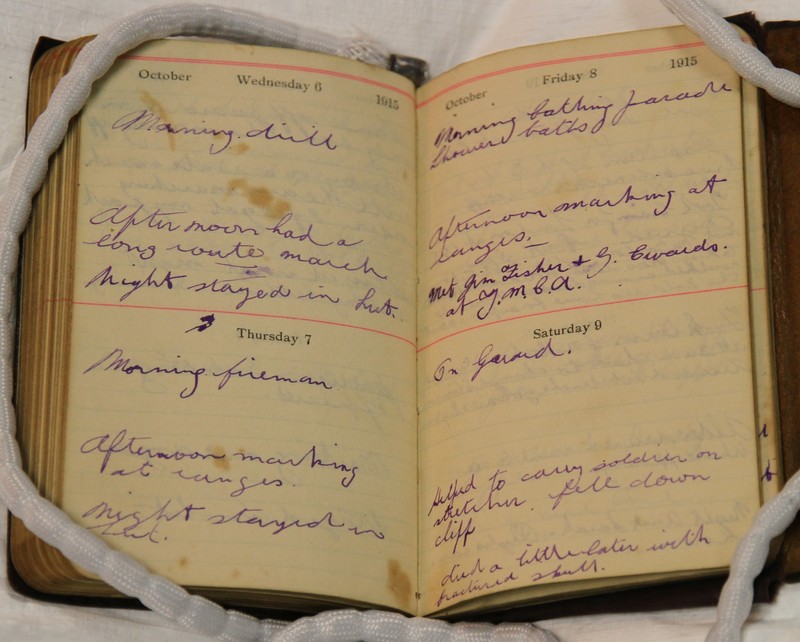 October Wednesday 6 1915
Morning drill
Afternoon had a
long route march
Night stayed in hut.
Thursday 7
Morning fireman
Afternoon marking
at ranges.
Night stayed in
hut.
October Friday 8 1915
Morning bathing parade
Showers baths
Afternoon marking at
ranges.
Met Jim Fisher & G. Edwards.
at Y.M.C.A.
Saturday 9
On Gaurd.
Helped to carry soldier on
stretcher. fell down
cliff
died a little later with
fractured skull.